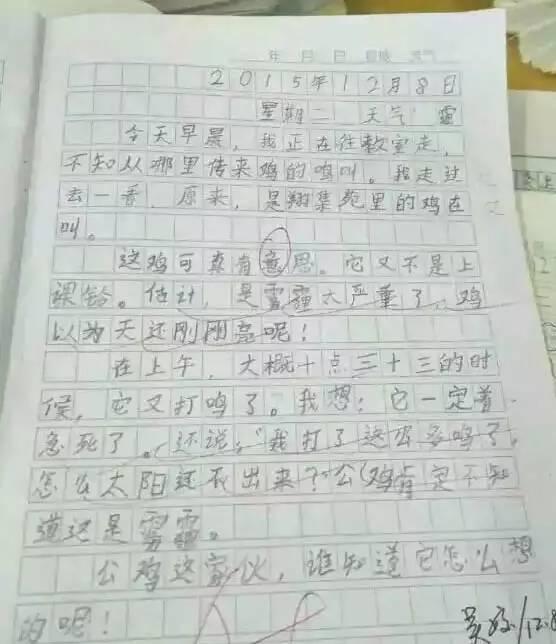 年 月 日 星期 天气
2015年12月8日
星期二 天气 霾
今天早晨，我正在往教室走，
不知从哪里传来鸡的鸣叫。我走过
去一看，原来，是翔集苑里的鸡在
叫。
这鸡可真有意思。它又不是上
课铃。估计，是雾霾太严重了，鸡
以为天还刚刚亮呢！
在上午，大概十点三十三的时
候，它又打鸣了。我想：它一定着
急死了。还说："我打了这么多鸣了，
怎么太阳还不出来？"公鸡肯定不知
道这是雾霾。
公鸡这家伙，谁知道它怎么想
的呢！